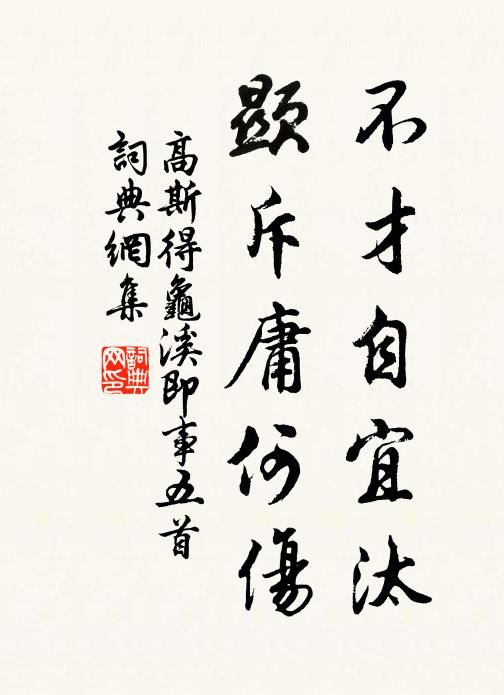 不才自宜汰
顯斥庸何傷
高斯得龜溪即事五首
詞典網集
詞典网印